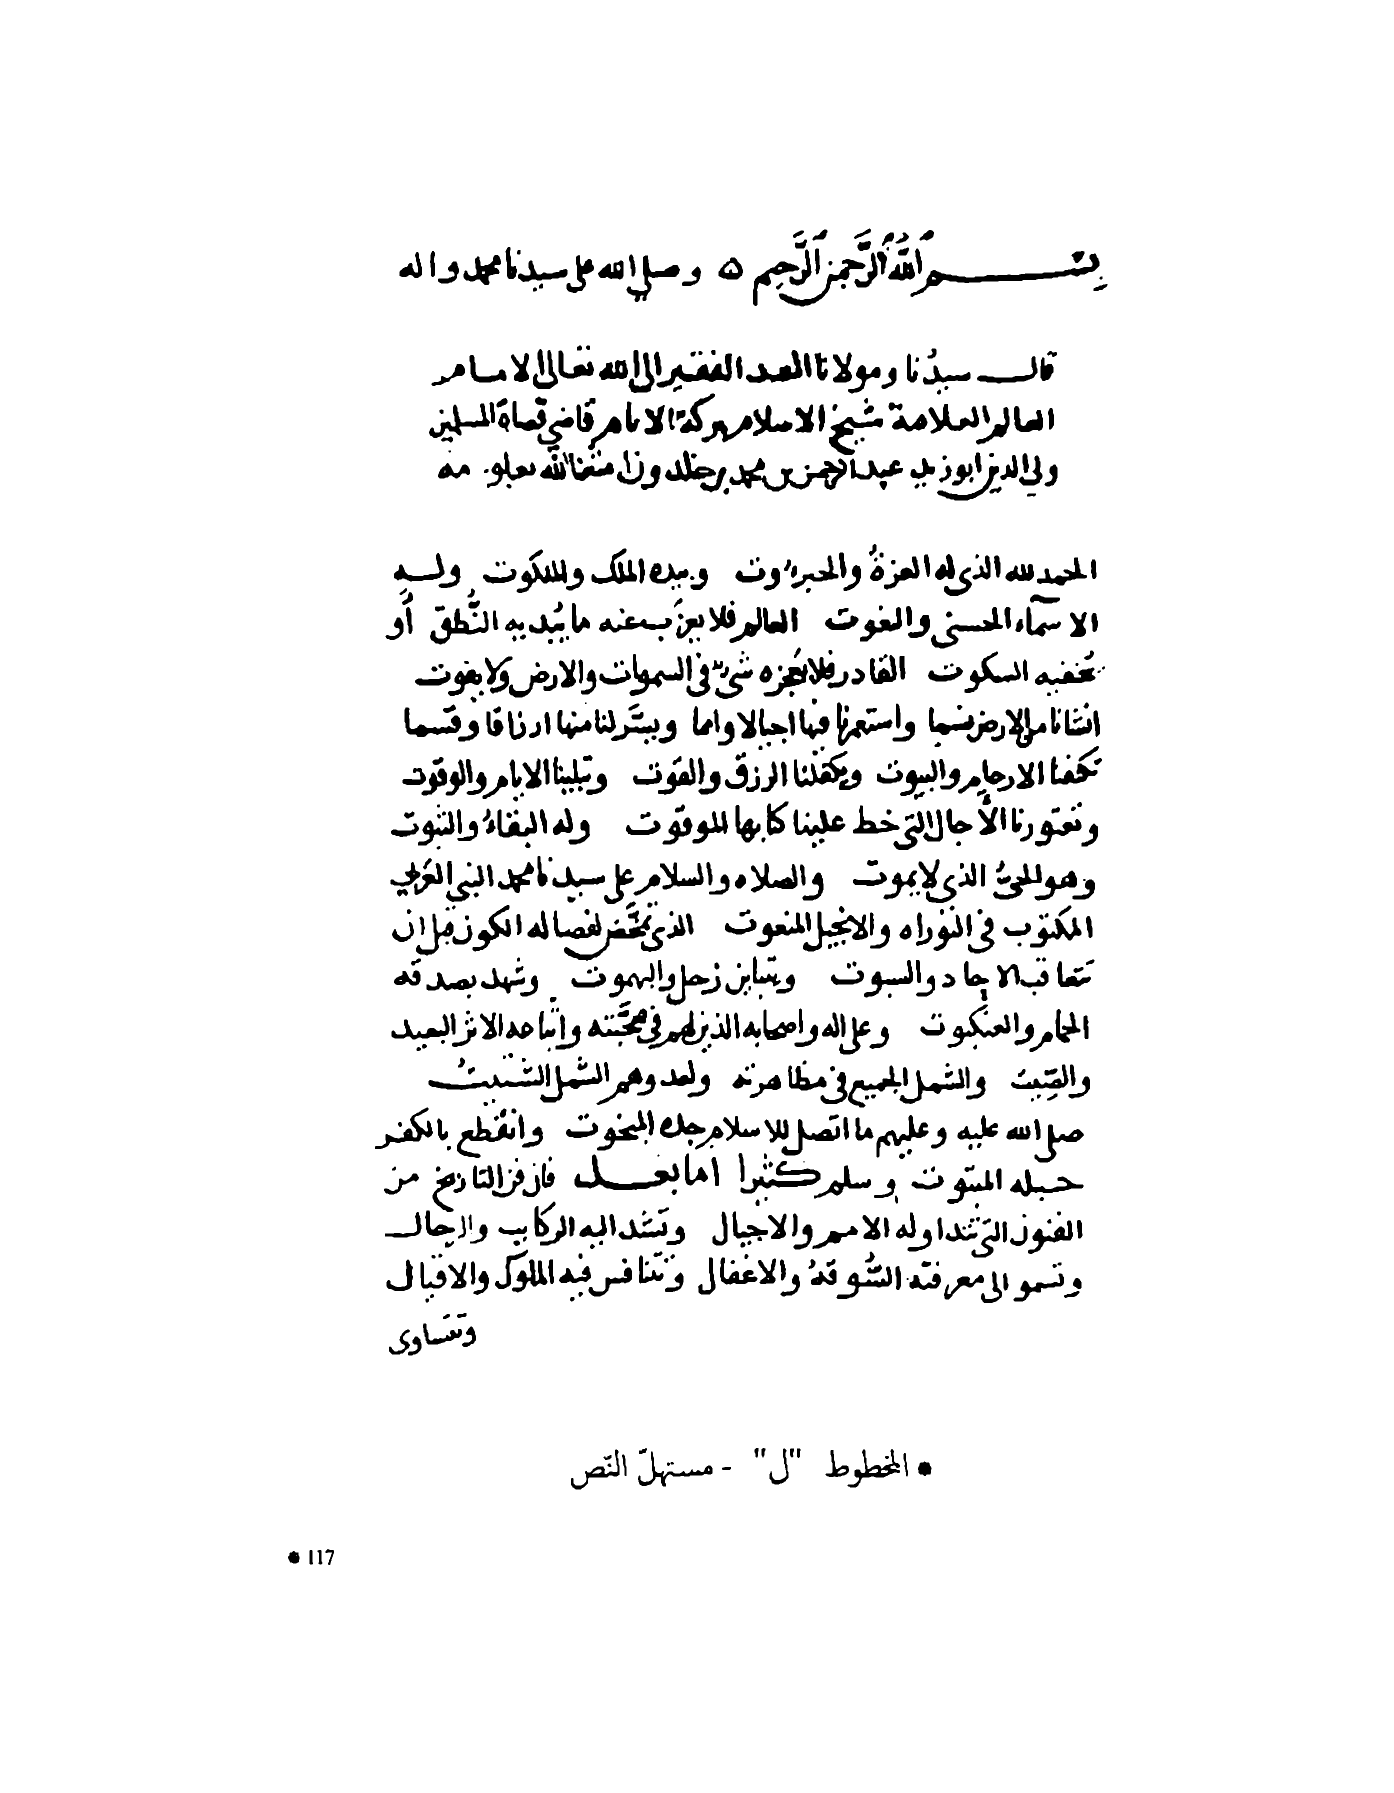 بسم الله الرحمن الرحيم ٥ وصلى الله على سيدنا محمد واله
قال سيدُنا ومولانا العبد الفقير الى الله تعالى الامام
العالم العلامة شيخ الاسلام بركة الانام قاضي قضاة المسلمين
ولي الدين ابو زيد عبد الرحمن بن محمد بن خلدون متعنا الله بعلومه
الحمد لله الذي له العزةُ والجبروت وبيده الملك والملكوت وله
الاسمآء الحسنى والنعوت العالم فلا يعزُب عنه ما يُبديه النُّطق أو
يُخفيه السكوت القادر فلا يُعجزه شيء في السموات والارض ولا يفوت
انشانا من الارض نسما واستعمرنا فيها اجيالا وامما ويسَّر لنا منها ارزاقا وقسما
تكنفنا الارحام والبيوت ويكفلنا الرزق والقوت وتبلينا الايام والوقوت
وتعتورنا الأجال التي خط علينا كتابها الموقوت وله البقاءُ والثبوت
وهو الحيُّ الذي لا يموت والصلاه والسلام على سيدنا محمد النبي العَربي
المكتوب في التوراه والانجيل المنعوت الذي تمخَّض لفصاله الكون قبل ان
تتعاقب الاحاد والسبوت ويتباين زحل والبهموت وشهد بصدقه
الحمام والعنكبوت وعلى اله واصحابه الذين لهم في محبَّته واتباعه الاثر البعيد
والصِّيت والشمل الجميع في مظاهرته ولعدوهم الشمل الشتيتُ
صلى الله عليه وعليهم ما اتصل للاسلام جده المبخوت وانقطع بالكفر
حبله المبتوت وسلم كثيرا اما بعد فان فن التاريخ من
الفنون التي تتداوله الامم والاجيال وتُشد اليه الركايب والرحال
وتسمو الى معرفته السُّوقةُ والاغفال وتتنافس فيه الملوك والاقيال
وتتساوى
● المخطوط "ل" - مستهلّ النّص
● 117